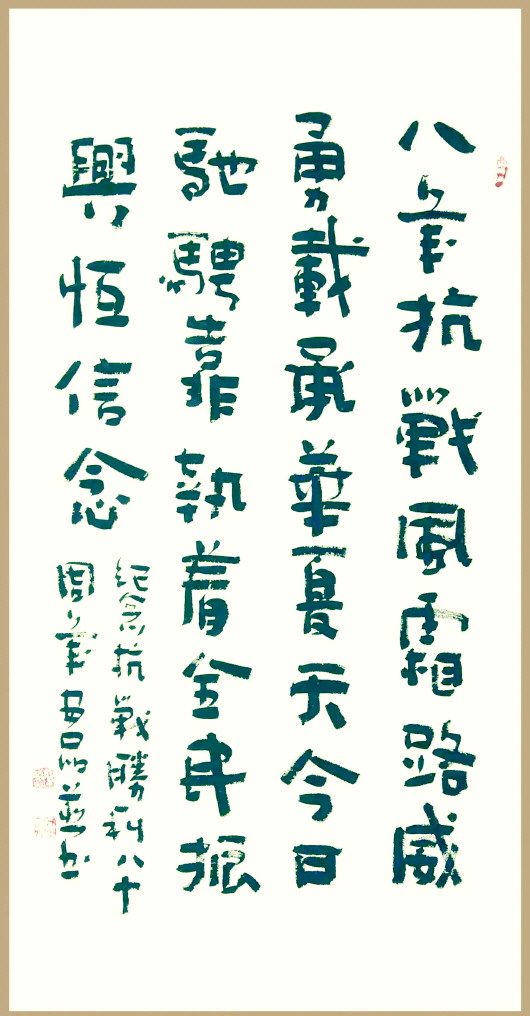 八年抗戰風霜路威
勇載承華夏天今日
馳騁靠執着全民振
興恒信念
纪念抗戰勝利八十
周年品书